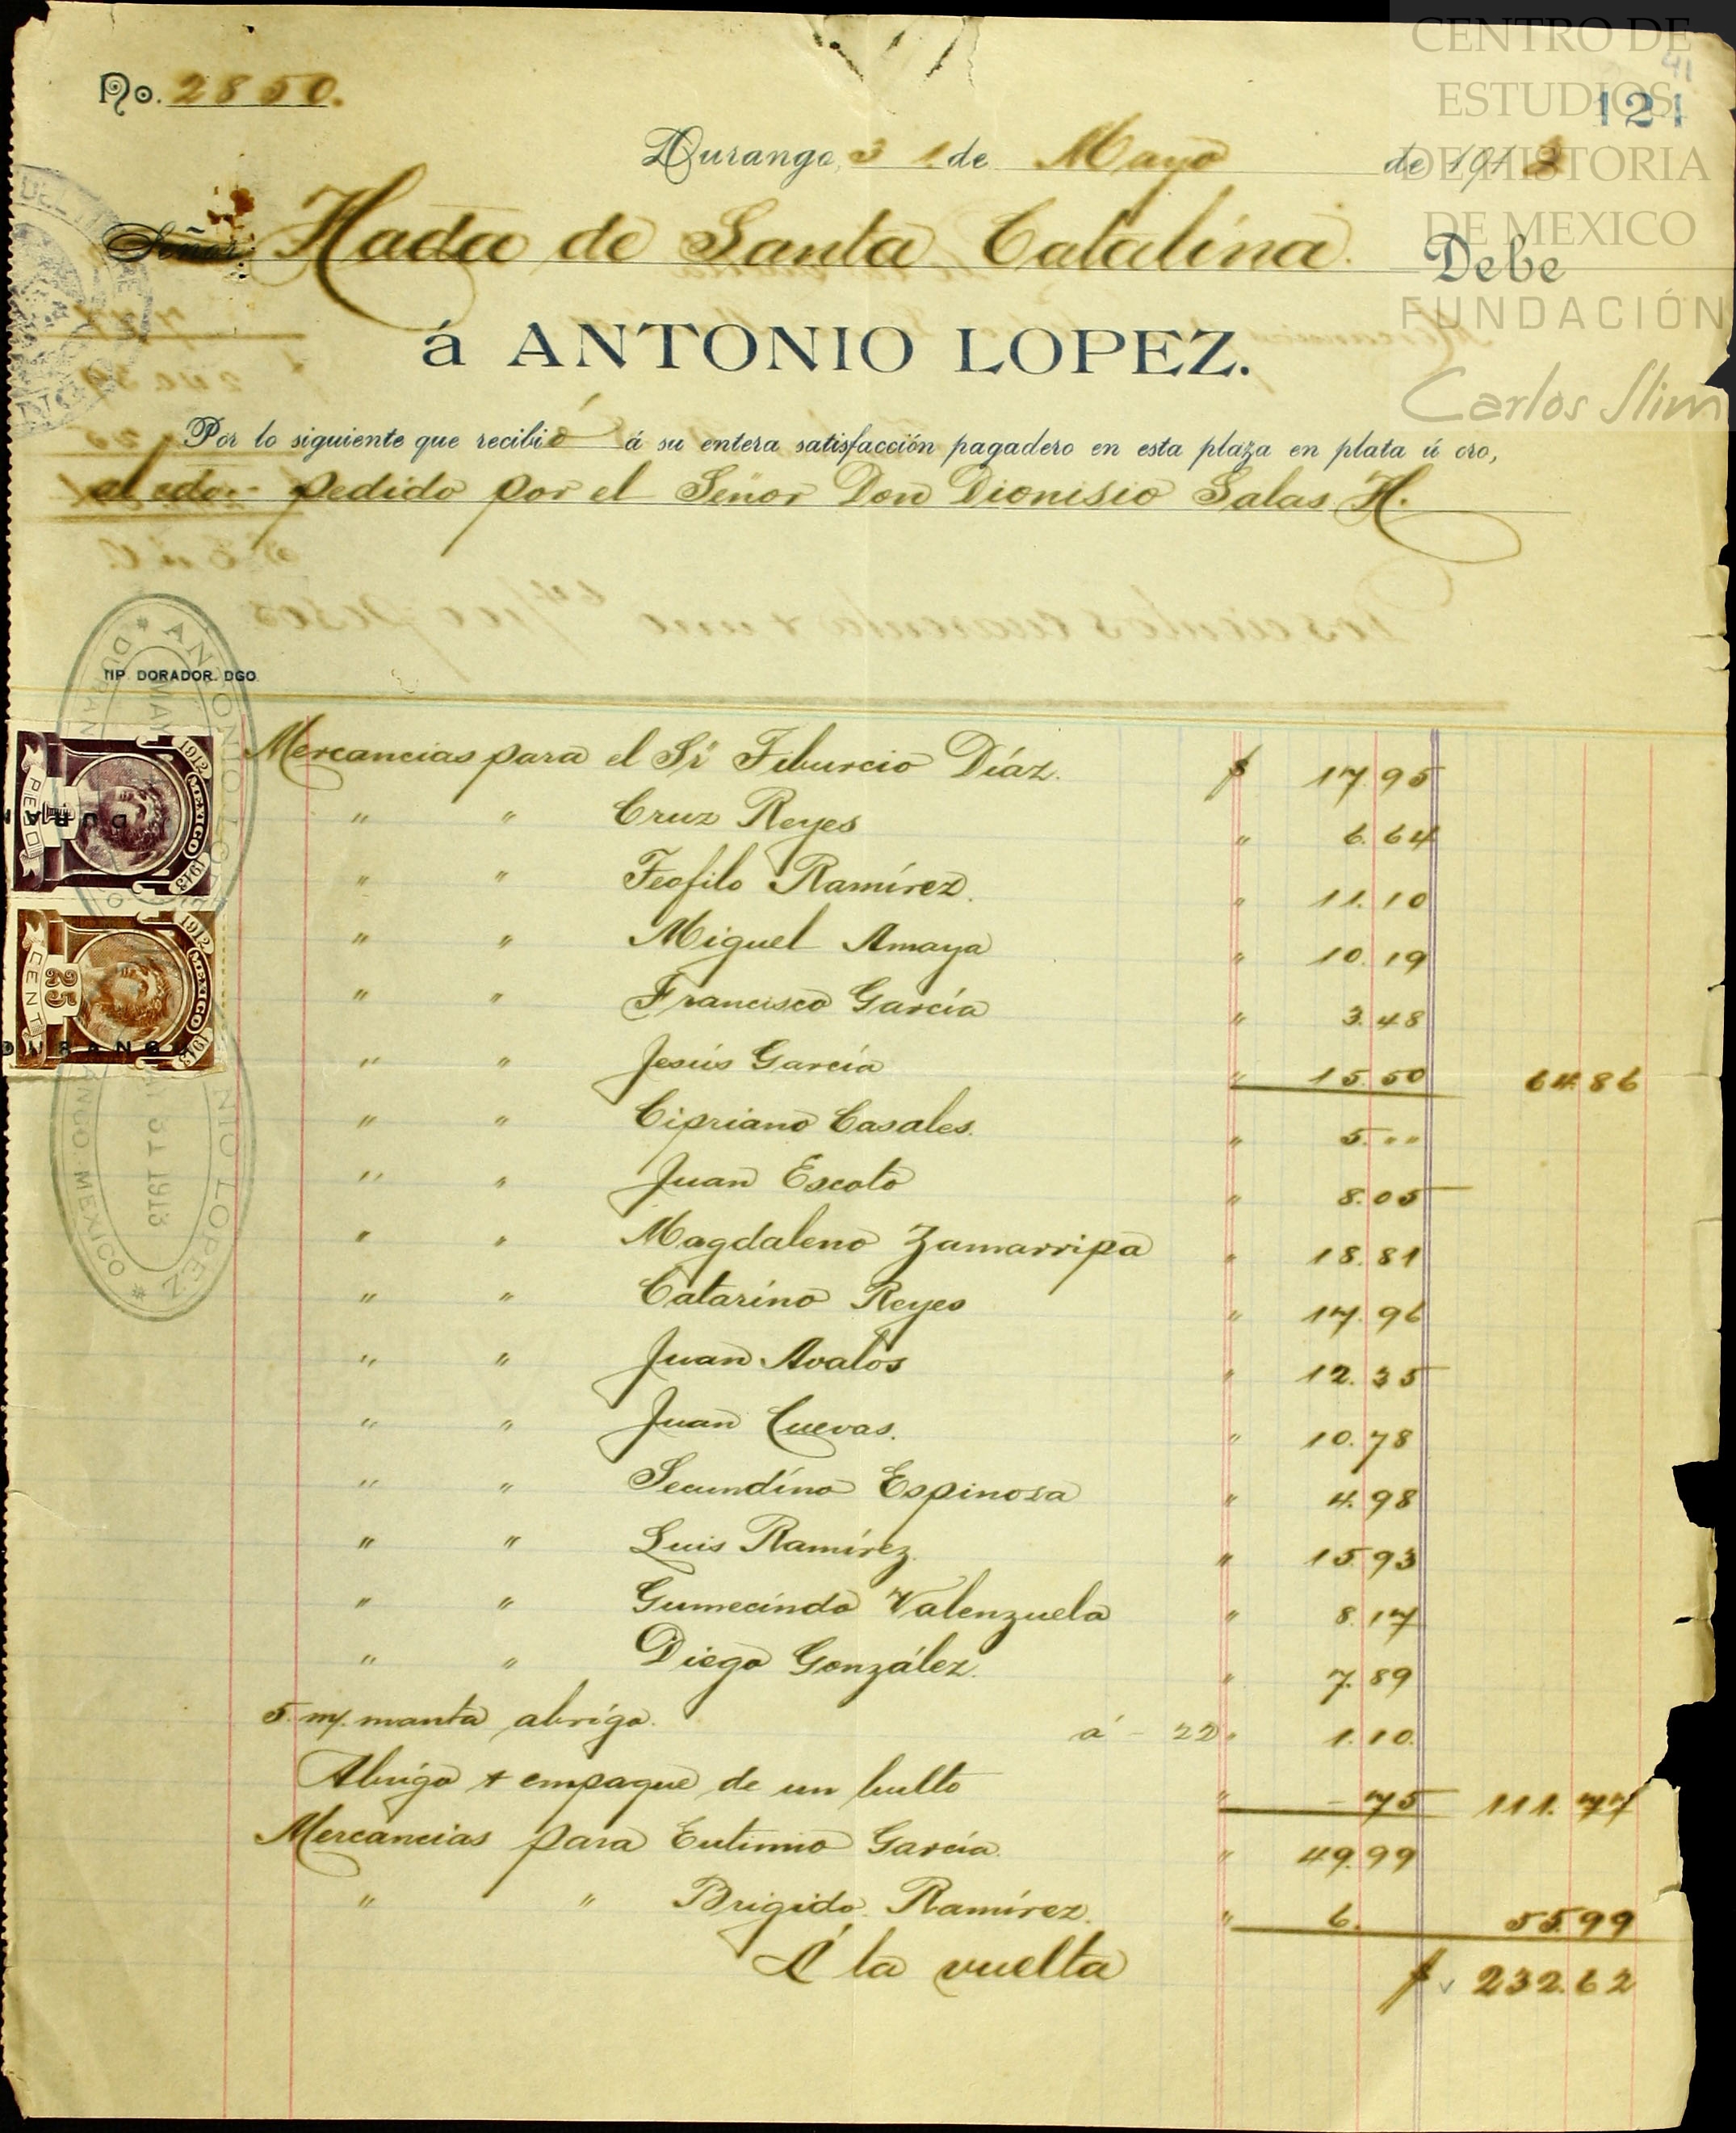 CENTRO DE
ESTUDIOS
DE HISTORIA
DE MEXICO
FUNDACIÓN
Carlos Slim
41
121
No. 2850.
Durango, 31 de Mayo de 1913
Señor Hada de Santa Catalina. Debe
á ANTONIO LOPEZ.
Por lo siguiente que recibió á su entera satisfacción pagadero en esta plaza en plata ú oro,
al cdo.- pedido por el Señor Don Dionisio Salas H.
TIP. DORADOR. DGO.
Mercancias para el Sr Tiburcio Díaz. $ 17.95
" " Cruz Reyes " 6.64
" " Teofilo Ramírez. " 11.10
" " Miguel Amaya " 10.19
" " Francisco García " 3.48
" " Jesús García " 15.50 64.86
" " Cipriano Casales. " 5.""
" " Juan Escoto " 8.05
" " Magdaleno Zamarripa " 18.81
" " Catarino Reyes " 17.96
" " Juan Avalos " 12.35
" " Juan Cuevas. " 10.78
" " Secundino Espinosa " 4.98
" " Luis Ramírez. " 15.93
" " Gumecindo Valenzuela " 8.17
" " Diego González. " 7.89
5. m/. manta abrigo. á - 22 " 1.10.
Abrigo & empaque de un bulto " - 75 111.77
Mercancias para Eutimio García. " 49.99
" " Brigido Ramírez. " 6. 55.99
Á la vuelta $ 232.62
1912 MEXICO 1913
1 PESO
DURAN
1912 MEXICO 1913
25 CENT
DURANGO
ANTONIO LOPEZ
DURANGO MEXICO
MAY 31 1913